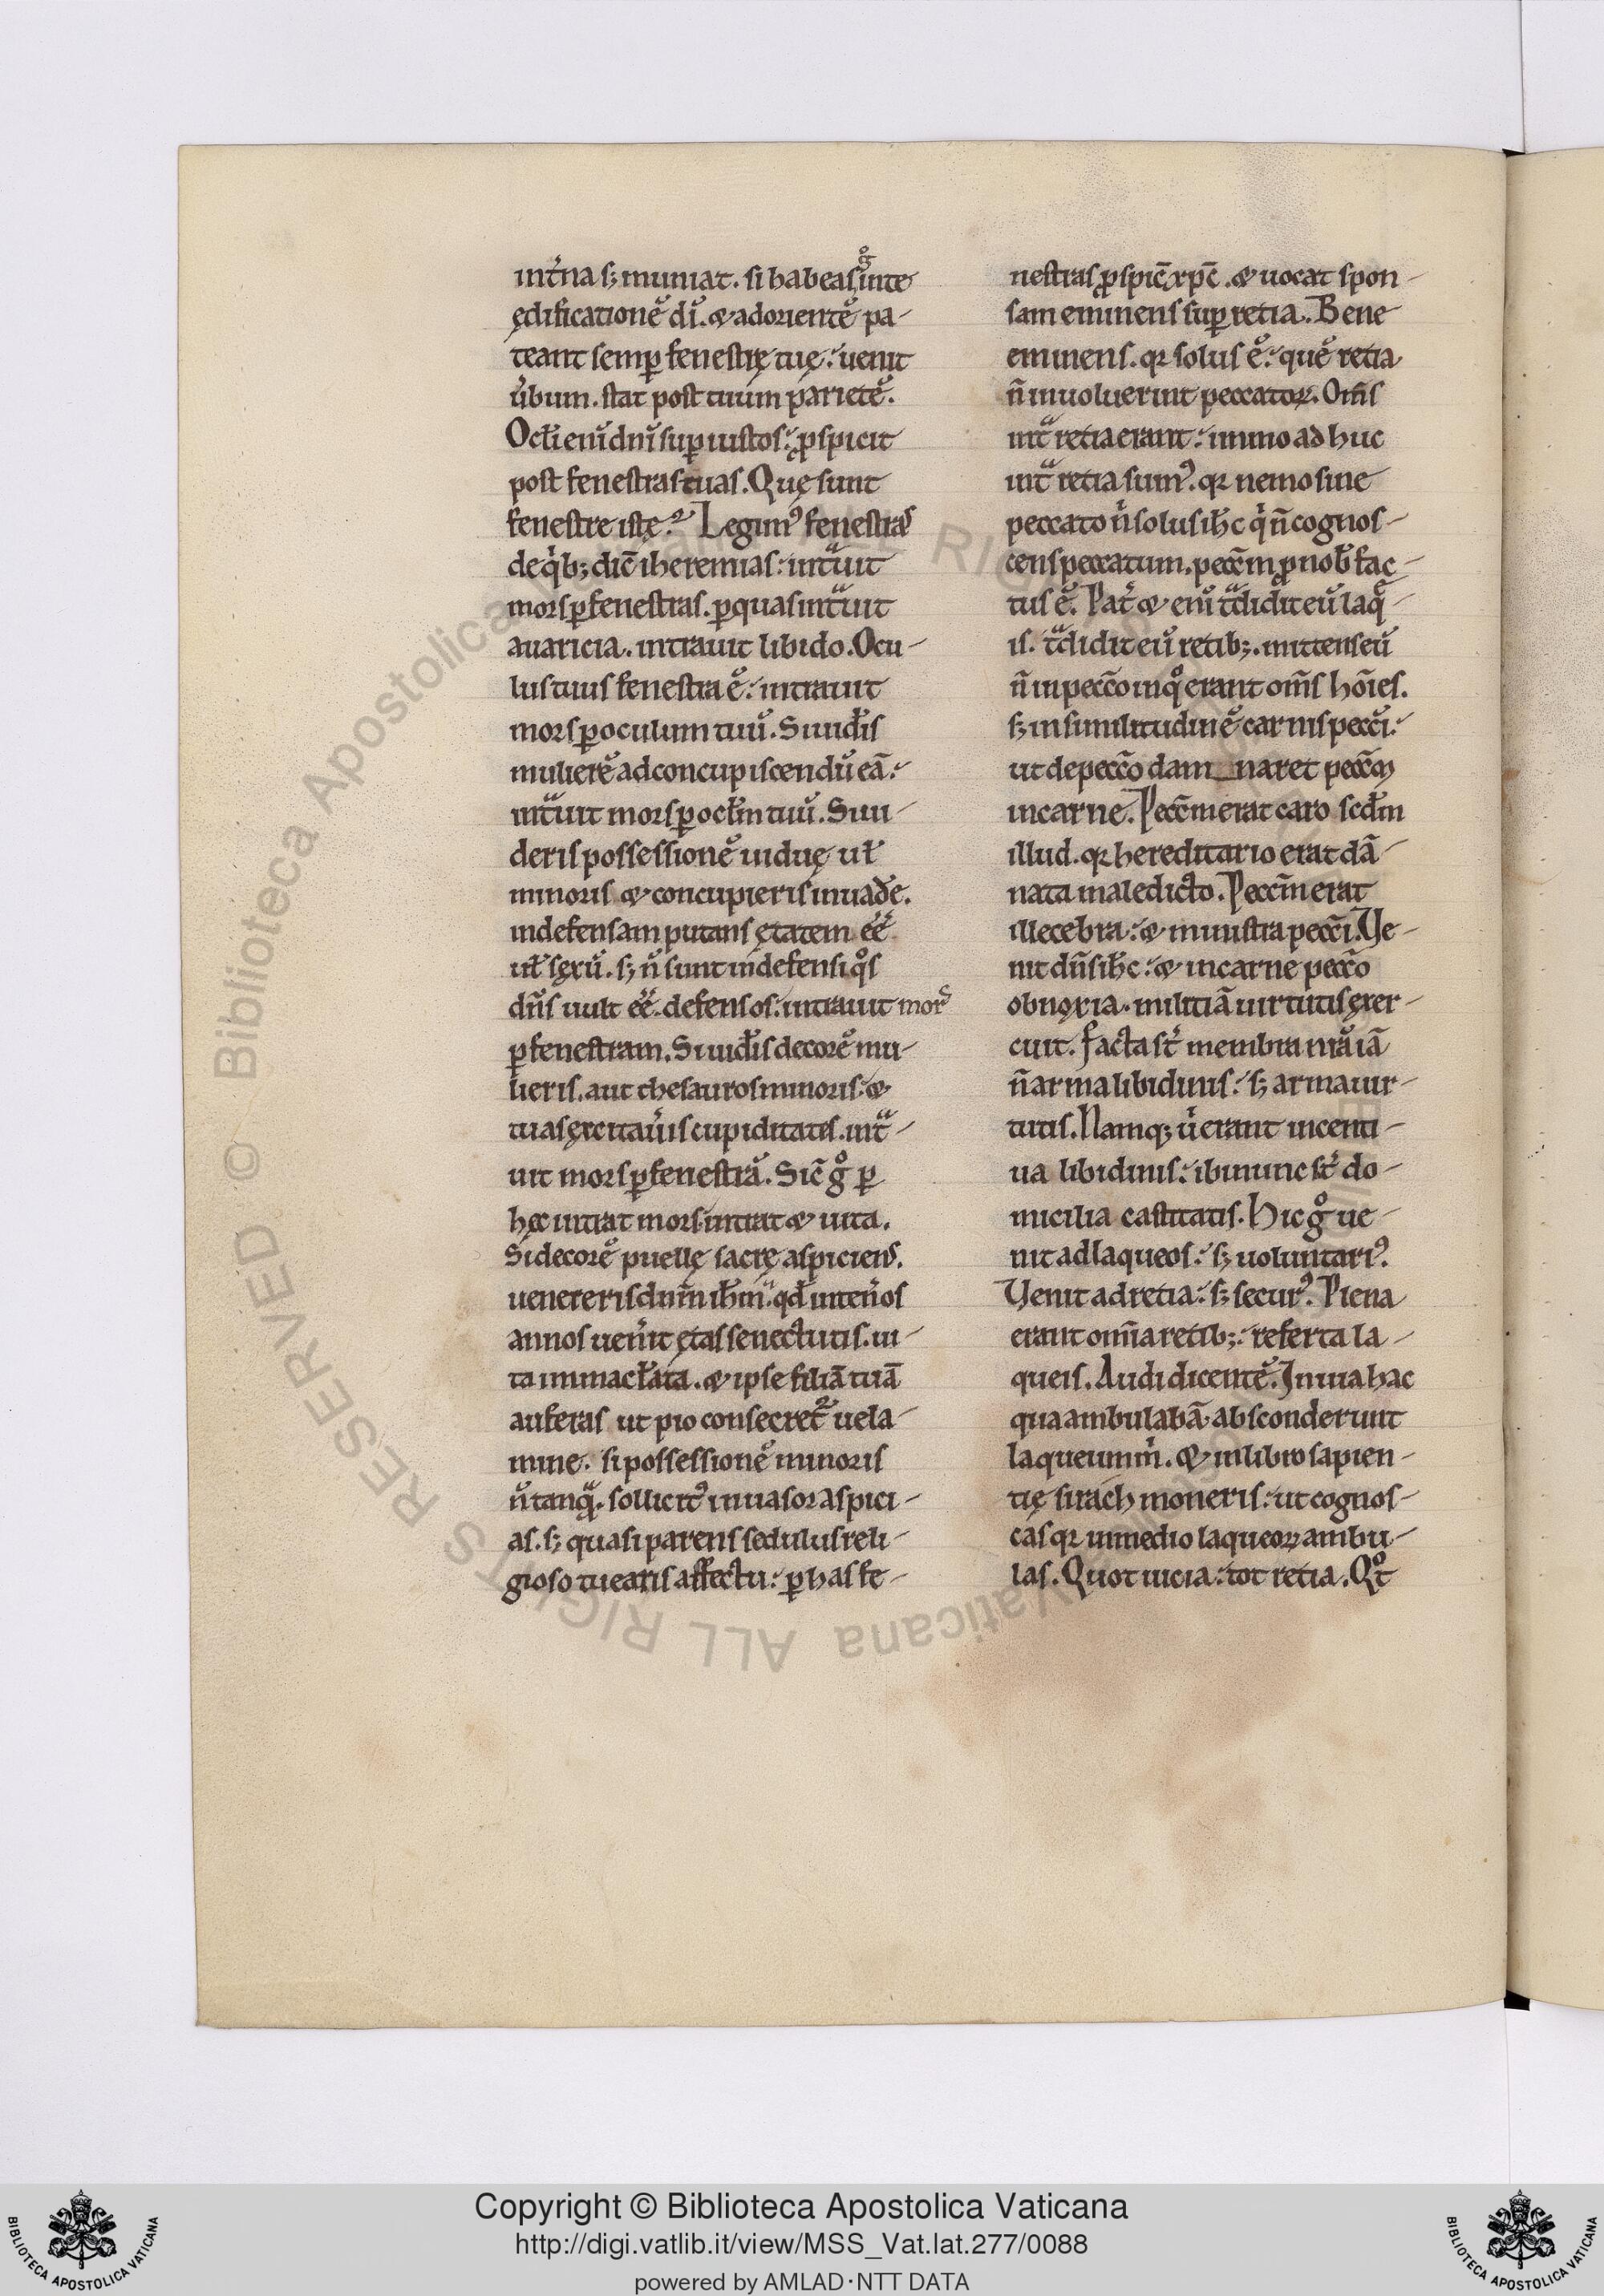 int̾na sꝫ muniat. si habeas gͦ inte
ędificationē dī. ⁊ adorientē pa-
teant semꝑ fenestrę tuę: uenit
u̾bum. stat post tuum parietē.
Ocłi enī dn̄i suꝑ iustos: ꝓspicit
post fenestras tuas. Quę sunt
fenestre istę? Legimꝰ fenestras
de qⁱbꝫ dic̄ iheremias: intᵃuit
mors ꝑ fenestras. ꝑ quas intᵃuit
auaricia. intrauit libido. Ocu-
lus tuus fenestra ē: intrauit
mors ꝑ oculum tuū. Si uid̾is
mulierē ad concupiscendū eā:
intᵃuit mors ꝑ ocłm tuū. Si ui-
deris possessionē uiduę uł
minoris ⁊ concupieris inuad̾e.
indefensam putans ętatem ēē
uł sęxū. sꝫ n̄ sunt indefensi qͦs
dn̄s uult ēē defensos: intrauit mors
ꝑ fenestram. Si uid̾is decorē mu-
lieris. aut thesauros minoris. ⁊
tuas ęxcitau̾is cupiditates. intᵃ-
uit mors ꝑ fenestrā. Sic̄ gͦ ꝑ
hęc intrat mors. intrat ⁊ uita.
Si decorē puellę sacrę aspiciens.
uenereris dn̄m ih̄m. qd̄ inten̾os
annos uen̾it ętas senectutis. ui-
ta immacłata. ⁊ ipse filiā tuā
auferas ut pio consecret᷑ uela-
mine. si possessionē minoris
n̄ tanqᵃ. sollicitꝰ inuasor aspici-
as. sꝫ quasi parens sedulus reli-
gioso tuearis affectu: ꝑ has fe-
nestras ꝓspic̄ xp̄c. ⁊ uocat spon-
sam eminens suꝑ retia. Bene
eminens. qꝛ solus ē: quē retia
n̄ inuoluerint peccatoꝝ. Om̄s
intᵃ retia erant: immo ad huc
intᵃ retia sumꝰ. qꝛ nemo sine
peccato nⁱ solus ih̄c qⁱ n̄ cognos-
cens peccatum. pecc̄m ꝓ nob̄ fac-
tus ē. Pat̾ ⁊ enī tᵃdidit eū laq̄-
is. tᵃdidit eū retibꝫ. mittens eū
n̄ in pecc̄o in qͦ erant om̄s hōies.
sꝫ in similitudinē carnis pecc̄i:
ut de pecc̄o dam_naret pecc̄m
in carne. Pecc̄m erat caro scd̄m
illud. qꝛ hereditario erat dā-
nata maledicto. Pecc̄m erat
illecebra: ⁊ ministra pecc̄i. Ue-
nit dn̄s ih̄c: ⁊ in carne pecc̄o
obnoxia. militiā uirtutis ęxer-
cuit. facta st̄ membra nrā iā
n̄ arma libidinis: sꝫ arma uir-
tutis. Namqꝫ uⁱ erant incenti-
ua libidinis: ibi nunc st̄ do-
micilia castitatis. Hic gͦ ue-
nit ad laqueos: sꝫ uoluntariꝰ.
Uenit ad retia: sꝫ securꝰ. Plena
erant om̄ia retibꝫ: referta la-
queis. Audi dicentē. In uia hac
qua ambulabā. absconderunt
laqueum m̾. ⁊ in libro sapien-
tię sirach moneris: ut cognos-
cas qꝛ in medio laqueoꝝ ambu-
las. Quot uicia: tot retia. Qͦt
Copyright © Biblioteca Apostolica Vaticana
http://digi.vatlib.it/view/MSS_Vat.lat.277/0088
powered by AMLAD·NTT DATA
BIBLIOTECA APOSTOLICA VATICANA
BIBLIOTECA APOSTOLICA VATICANA
© Biblioteca Apostolica Vaticana ALL RIGHTS RESERVED